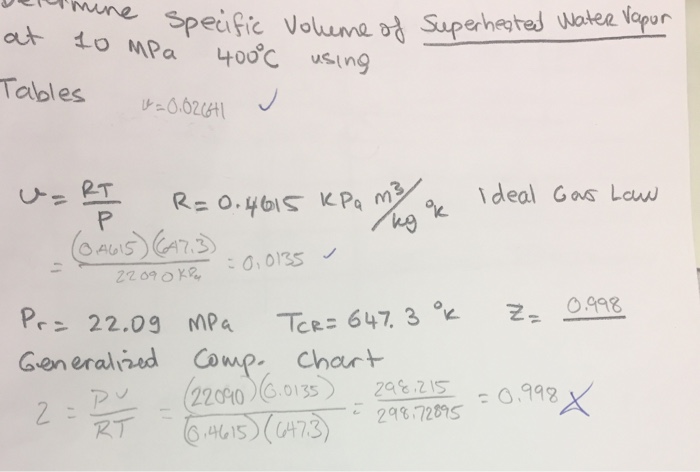 Determine Specific Volume of Superheated Water Vapor
at 10 MPa 400°C using
Tables v=0.02641 ✓
v = RT/P R = 0.4615 KPa m³/kg °K ideal Gas Law
= (0.4615)(647.3)/22090 KPa = 0.0135 ✓
Pr = 22.09 MPa TCR = 647.3 °K Z = 0.998
Generalized Comp. Chart
Z = PV/RT = (22090)(0.0135)/(0.4615)(647.3) = 298.215/298.72895 = 0.998 X